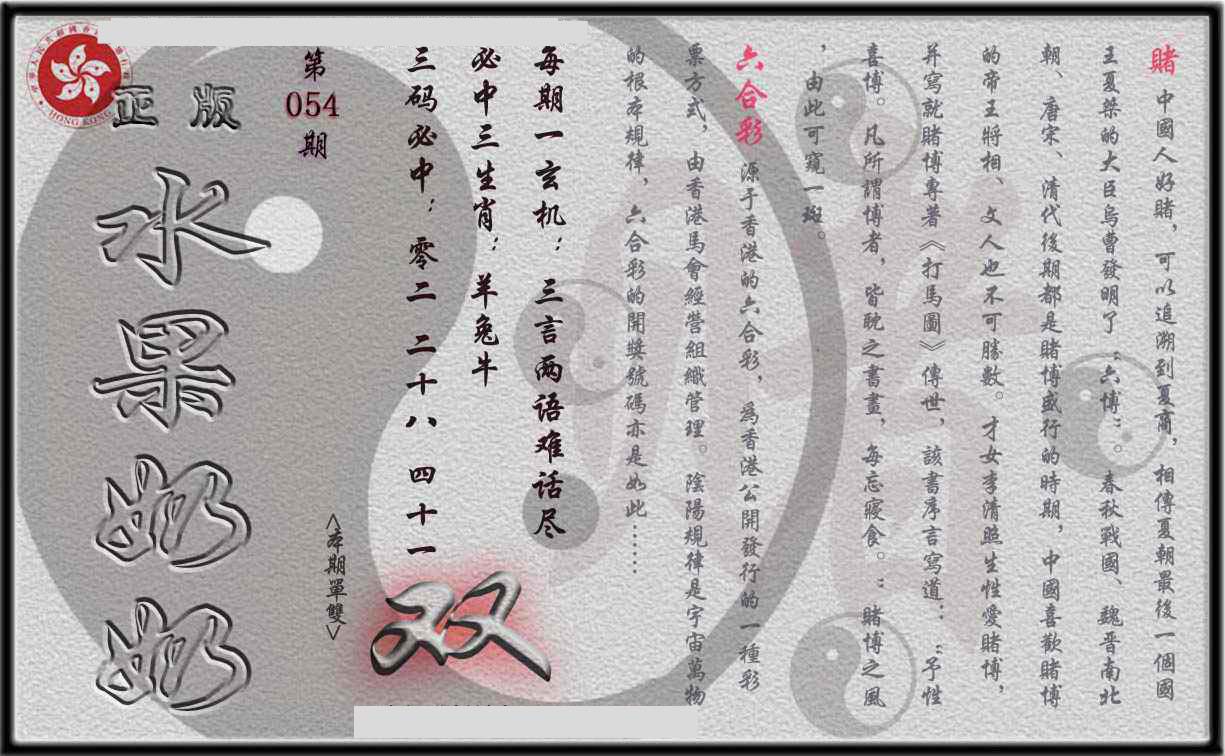 賭 中國人好賭，可以追溯到夏商，相傳夏朝最後一個國
王夏桀的大臣烏曹發明了“六博”。春秋戰國、魏晋南北
朝、唐宋、清代後期都是賭博盛行的時期，中國喜歡賭博
的帝王將相、文人也不可勝數。才女李清照生性愛賭博，
并寫就賭博專著《打馬圖》傳世，該書序言寫道：“予性
喜博。凡所謂博者，皆耽之書晝，每忘寢食。”賭博之風
，由此可窺一斑。
六合彩 源于香港的六合彩，爲香港公開發行的一種彩
票方式，由香港馬會經營組織管理。陰陽規律是宇宙萬物
的根本規律，六合彩的開獎號碼亦是如此……
每期一玄机：三言两语难话尽
必中三生肖：羊兔牛
三码必中：零二 二十八 四十一
双
<本期單雙>
第
054
期
正版
水果奶奶
HONG KONG